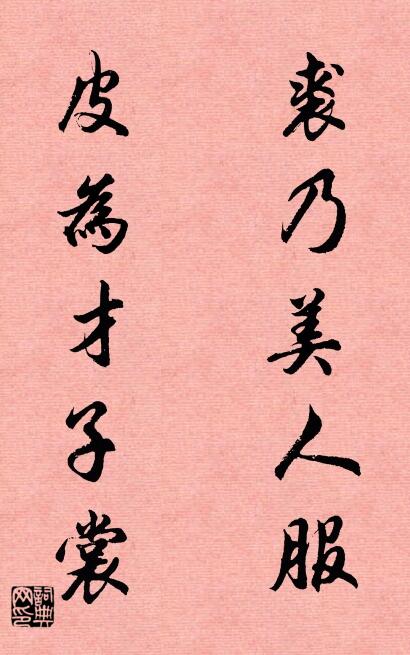 裘乃美人服
皮為才子裳
詞典網印